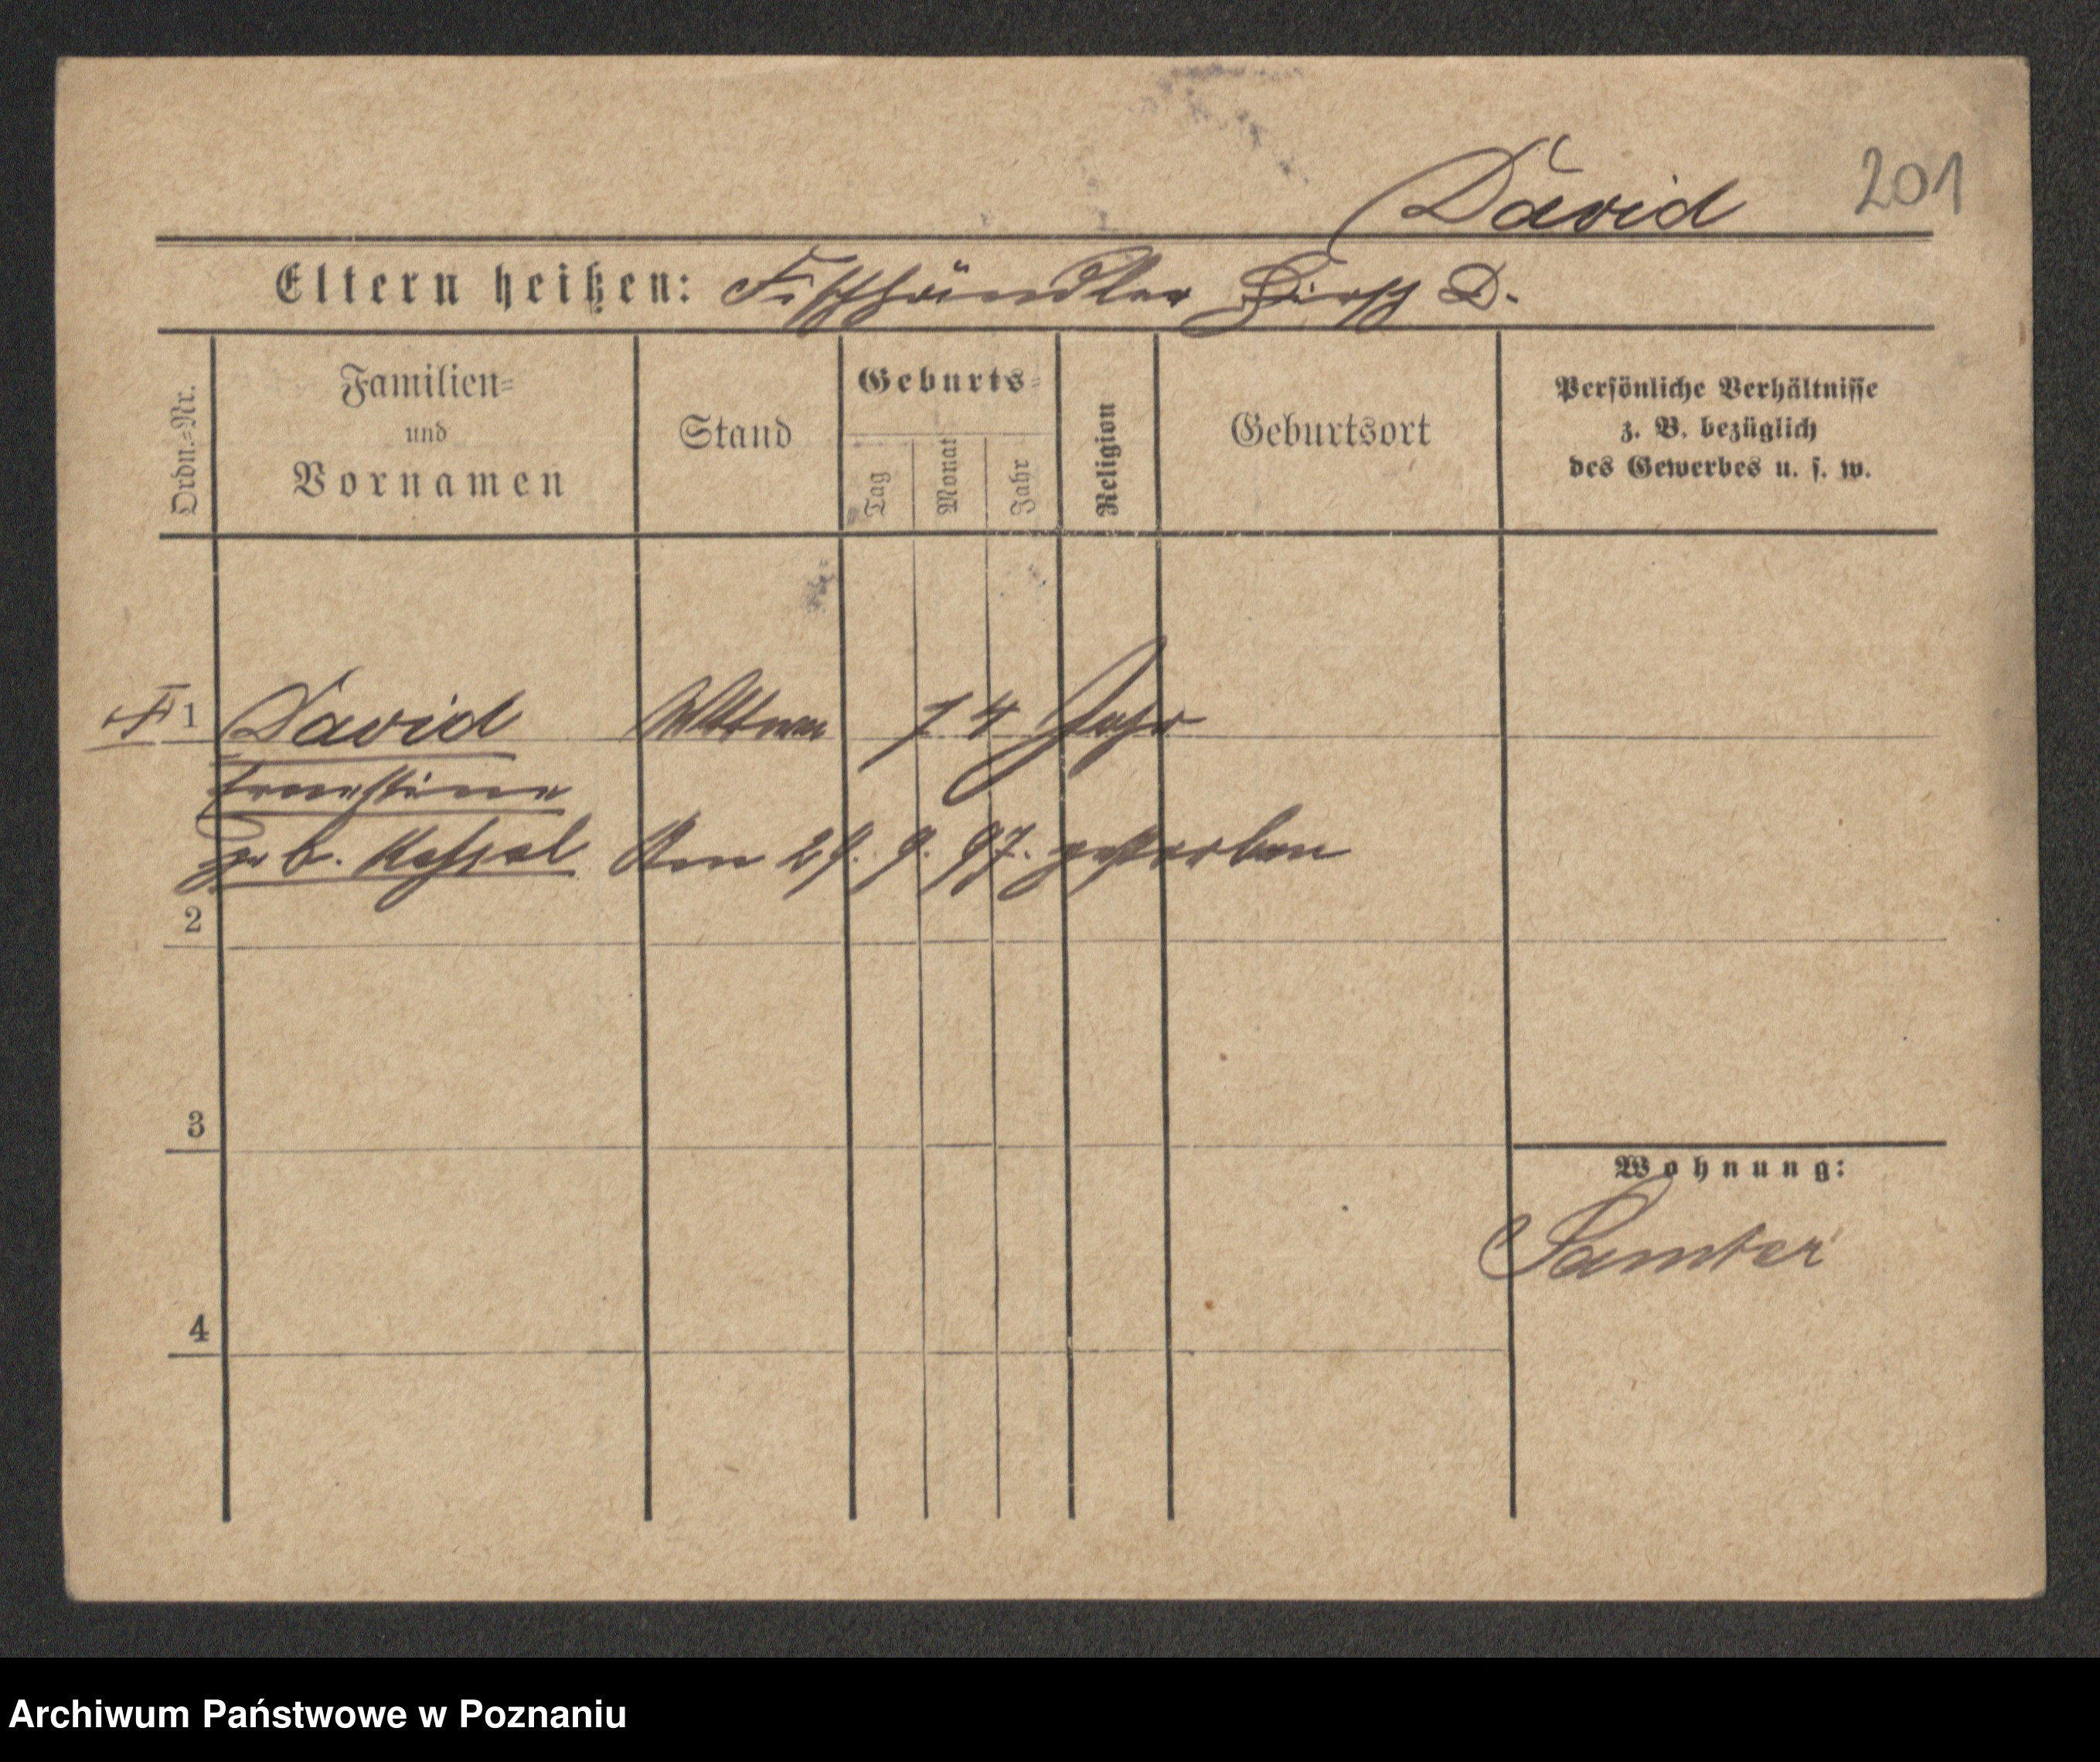 David 201
Eltern heißen: Fischhändler Hirsch D.
Ordn.=Nr.
Familien=
und
Vornamen
Stand
Geburts=
Tag Monat Jahr
Religion
Geburtsort
Persönliche Verhältnisse
z. B. bezüglich
des Gewerbes u. s. w.
1 David Wittwe 74 Jahr
Ernestine
geb. Am 29. 9. 97. gestorben
2
3
Wohnung:
Samter
4
Archiwum Państwowe w Poznaniu